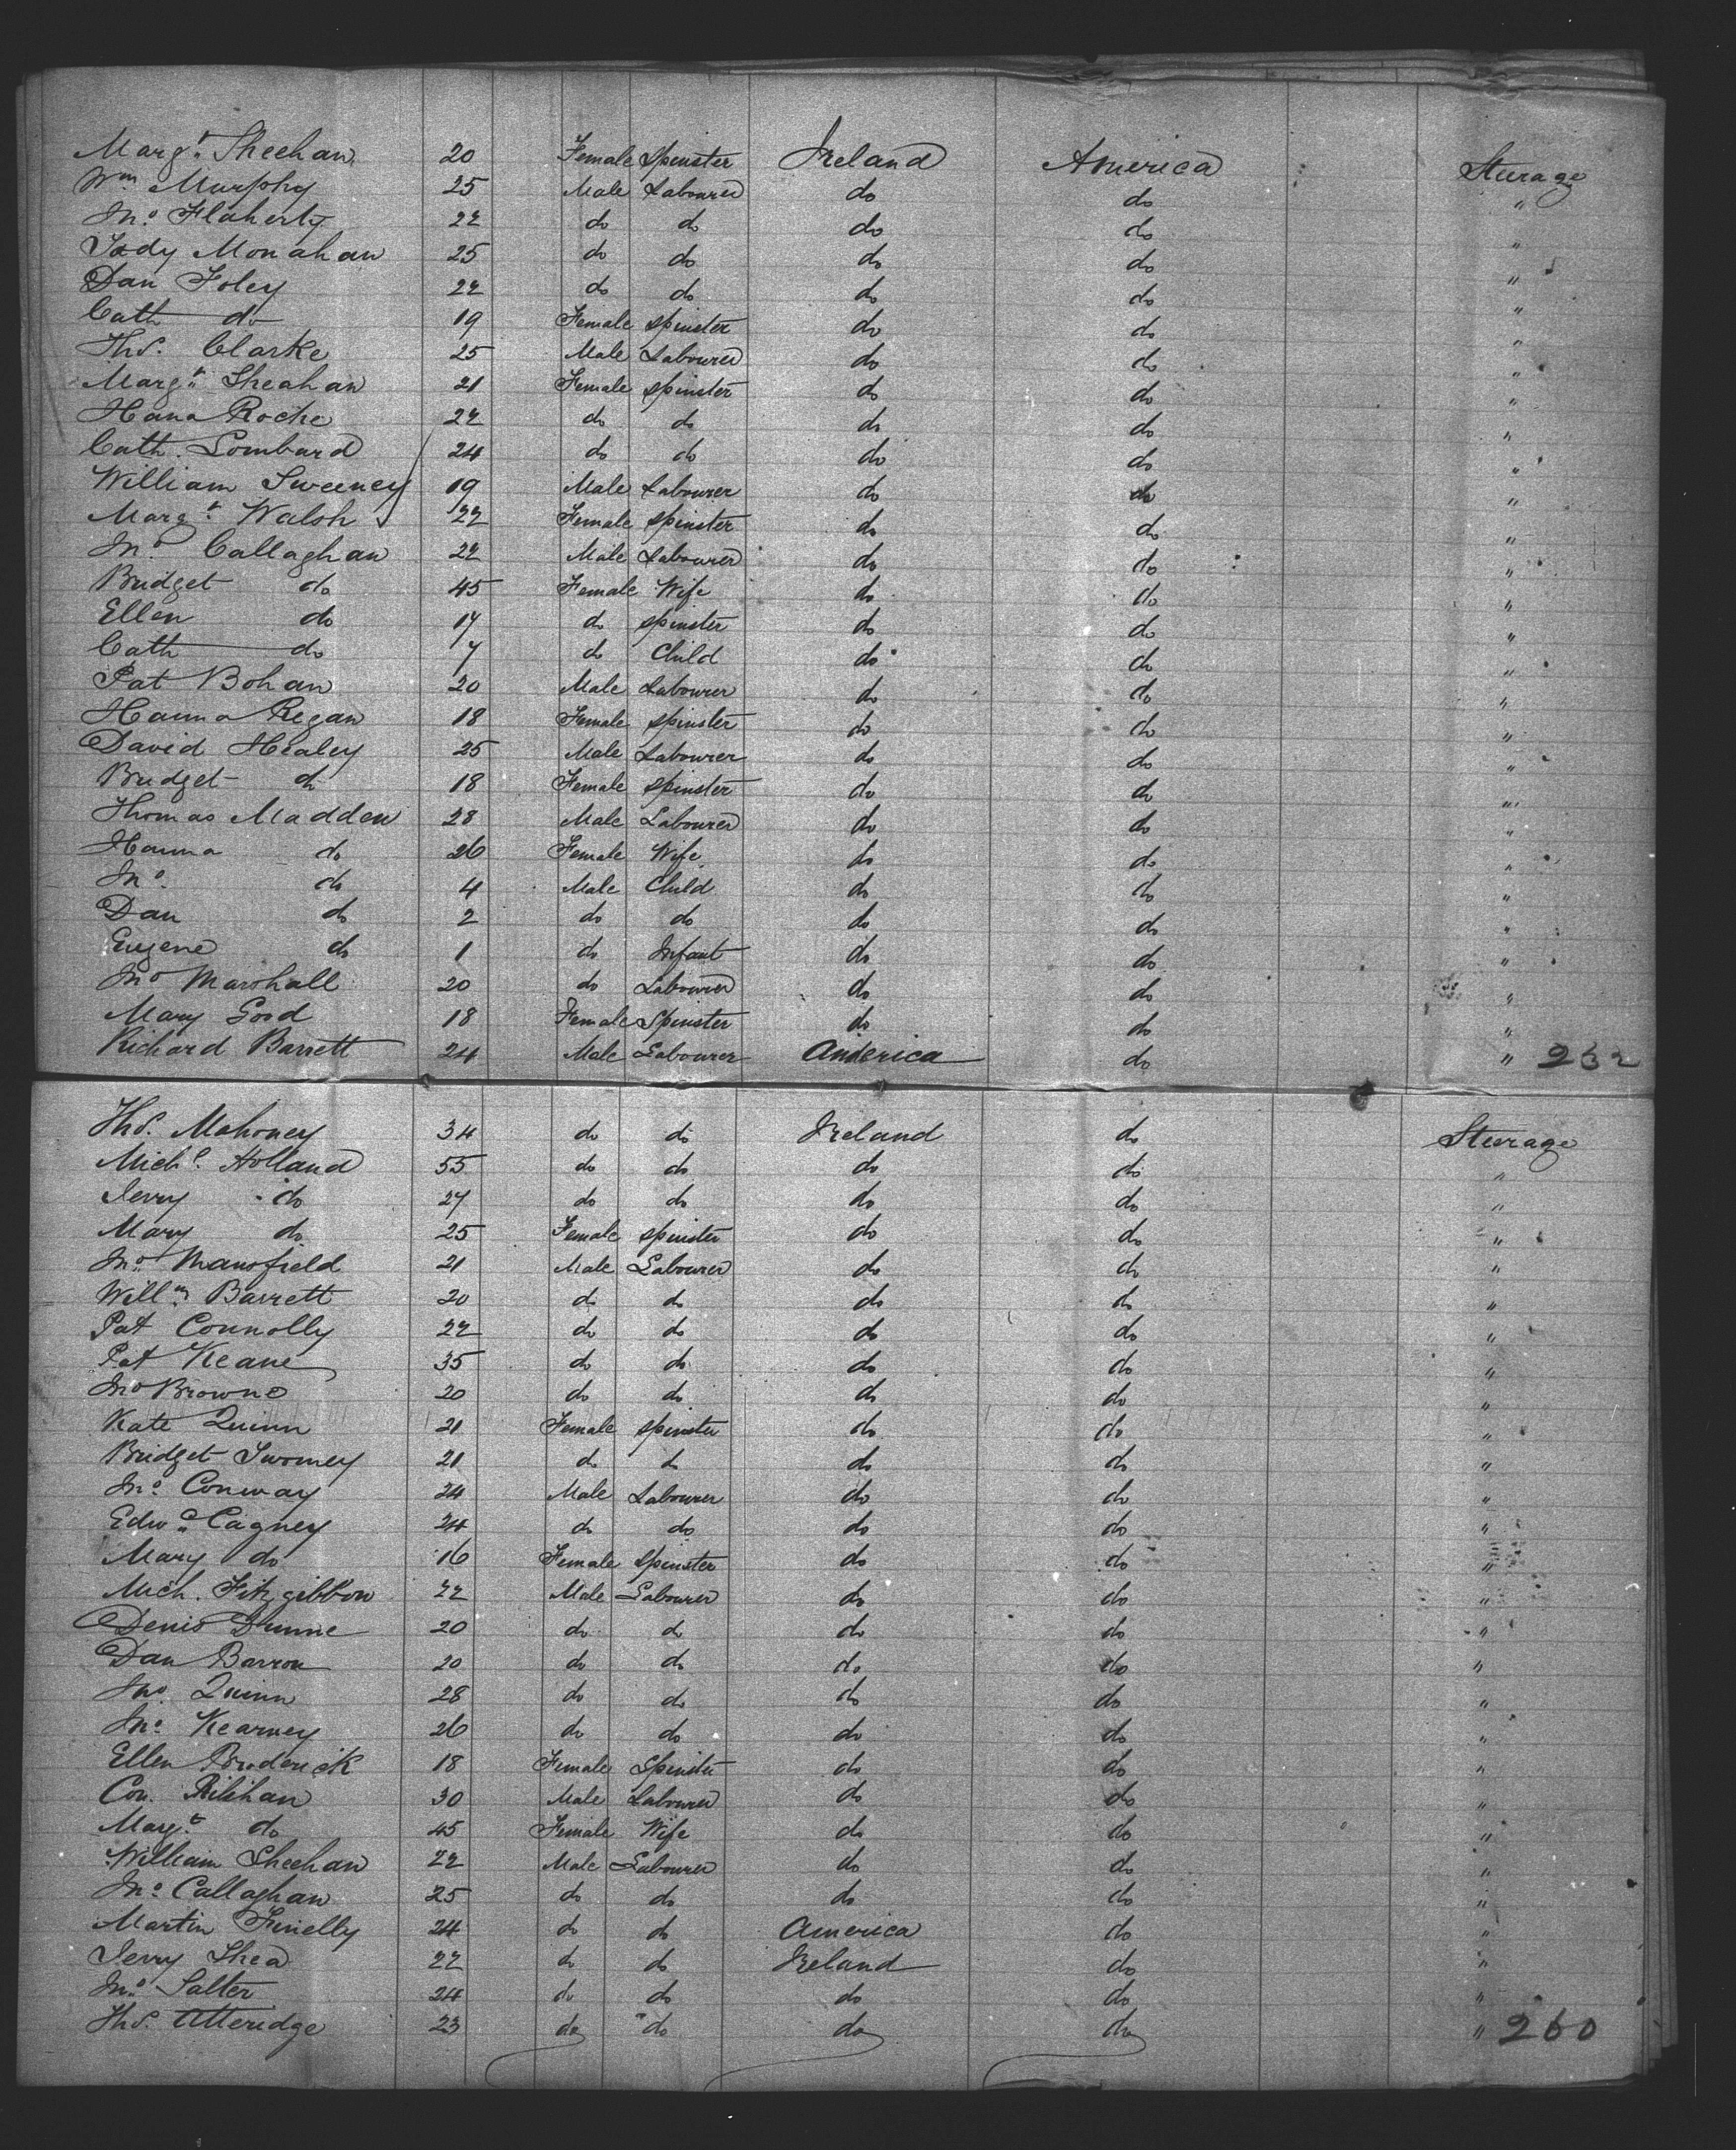 Margt. Sheehan 20 Female Spinster Ireland America Steerage
Wm Murphy 25 Male Labourer do do "
Jno. Flaherty 22 do do do do "
Tady Monahan 25 do do do do "
Dan Foley 22 do do do do "
Cath do 19 Female Spinster do do "
Thos. Clarke 25 Male Labourer do do "
Margt. Sheahan 21 Female Spinster do do "
Hana Roche 22 do do do do "
Cath. Lombard 24 do do do do "
William Sweeney 19 Male Labourer do do "
Margt. Walsh 22 Female Spinster do do "
Jno. Callaghan 22 Male Labourer do do "
Bridget do 45 Female Wife do do "
Ellen do 17 do Spinster do do "
Cath do 7 do Child do do "
Pat Bohan 20 Male Labourer do do "
Hanna Regan 18 Female Spinster do do "
David Healey 25 Male Labourer do do "
Bridget do 18 Female Spinster do do "
Thomas Madden 28 Male Labourer do do "
Hanna do 26 Female Wife do do "
Jno. do 4 Male Child do do "
Dan do 2 do do do do "
Eugene do 1 do Infant do do "
Jno Marshall 20 do Labourer do do "
Mary 18 Female Spinster do do "
Richard Barrett 24 Male Labourer America do " 232
Thos. Mahoney 34 do do Ireland do Steerage
Michl. Holland 55 do do do do "
Jerry do 27 do do do do "
Mary do 25 Female Spinster do do "
Jno. Mansfield 21 Male Labourer do do "
Willm. Barrett 20 do do do do "
Pat Connolly 22 do do do do "
Pat Keane 35 do do do do "
Jno Browne 20 do do do do "
Kate Quinn 21 Female Spinster do do "
Bridget Twomey 21 do do do do "
Jno. Conway 24 Male Labourer do do "
Edwd. Cagney 24 do do do do "
Mary do 16 Female Spinster do do "
Mich. Fitzgibbon 22 Male Labourer do do "
Denis Dunne 20 do do do do "
Dan Barron 20 do do do do "
Jno. Quinn 28 do do do do "
Jno. Kearney 26 do do do do "
Ellen Broderick 18 Female Spinster do do "
Con. 30 Male Labourer do do "
Margt. do 45 Female Wife do do "
William Sheehan 22 Male Labourer do do "
Jno. Callaghan 25 do do do do "
Martin 24 do do America do "
Jerry Shea 22 do do Ireland do "
Jno. Salter 24 do do do do "
Thos. Atteridge 23 do do do do " 260